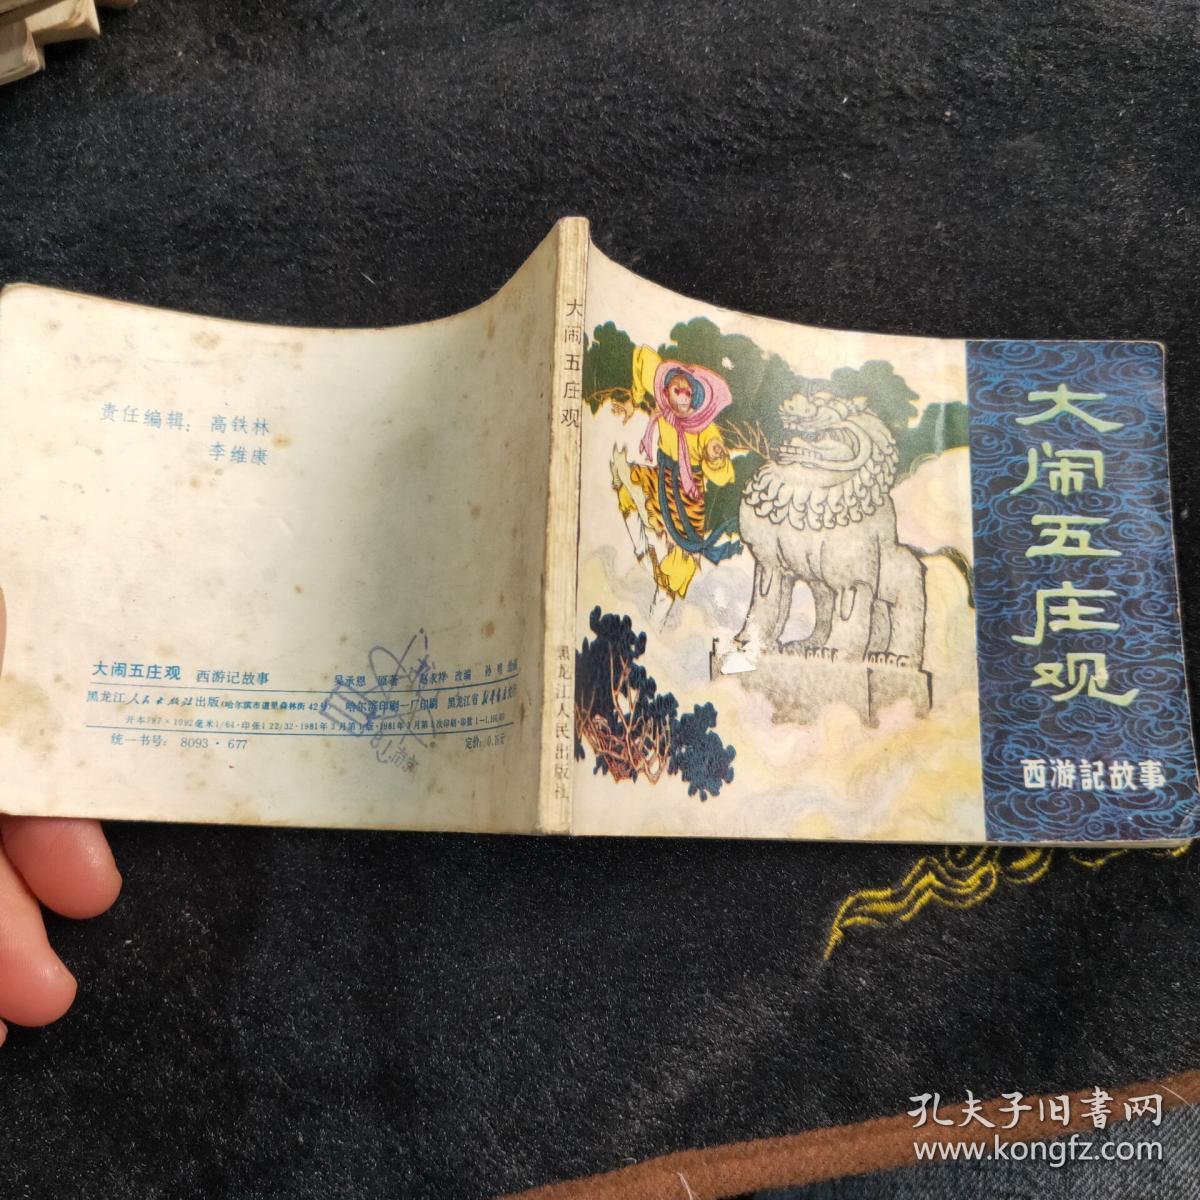 大闹五庄观
西游記故事
大闹五庄观
黑龙江人民出版社
责任编辑：高铁林
李维康
大闹五庄观 西游记故事 吴承恩 原著 赵永祥 改编 孙明 绘画
黑龙江人民出版社出版(哈尔滨市道里森林街42号) 哈尔滨印刷一厂印刷 黑龙江省新华书店发行
开本787×1092毫米1/64·印张1 22/32·1981年3月第1版·1981年3月第1次印刷·印数1—1,
统一书号：8093·677 定价：0.15元
孔夫子旧書网
www.kongfz.com